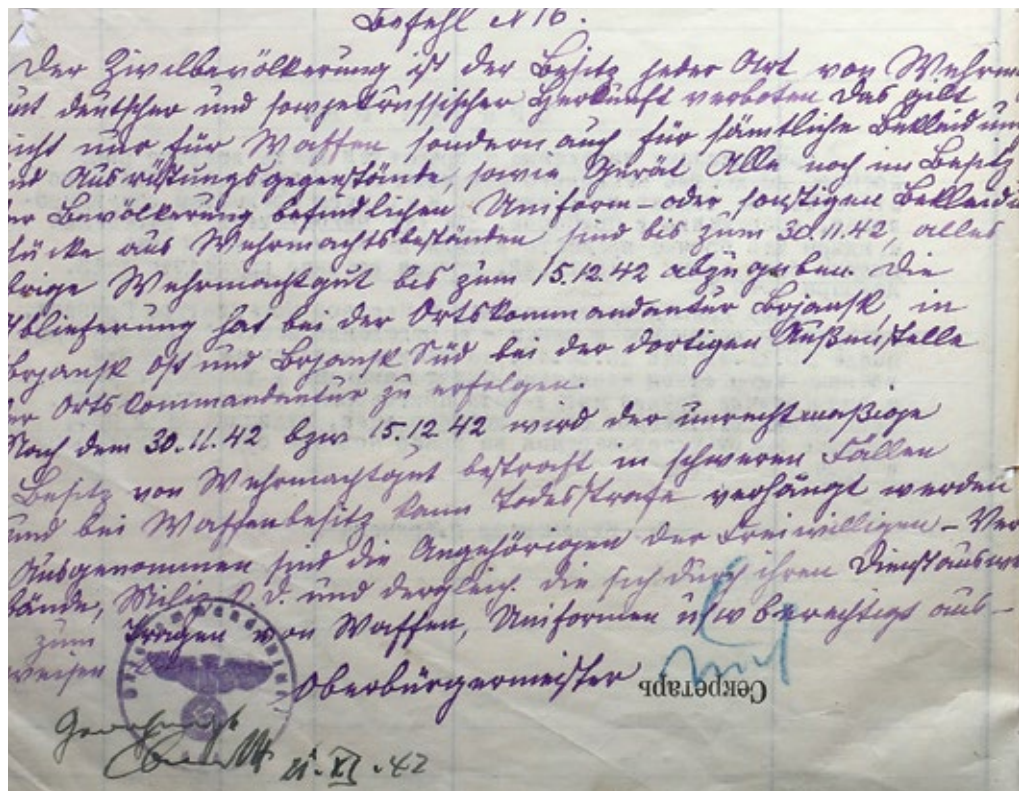 Befehl N 16.
Der Zivilbevölkerung ist der Besitz jeder Art von Wehrm
ut deutscher und sowjetrussischer Herkunft verboten Das gilt
icht nur für Waffen sondern auch für sämtliche Bekleidun
nd Ausrüstungsgegenstände, sowie Gerät Alle noch im Besitz
er Bevölkerung befindlichen Uniform- oder sonstigen Bekleidu
tücke aus Wehrmachtsbeständen sind bis zum 30.11.42, alles
brige Wehrmachtgut bis zum 15.12.42 abzugeben. Die
blieferung hat bei der Ortskommandantur Brjansk, in
Brjansk Ost und Brjansk Süd bei der dortigen Außenstelle
er Ortskommandantur zu erfolgen.
Nach dem 30.11.42 bzw 15.12.42 wird der unrechtmäßige
Besitz von Wehrmachtgut bestraft in schweren Fällen
und bei Waffenbesitz kann Todesstrafe verhängt werden
Ausgenommen sind die Angehörigen der Freiwilligen-Ver
bände, Miliz O.D. und dergleich. die sich durch ihren Dienstauswe
zum Tragen von Waffen, Uniformen usw berechtigt aus-
weisen
Oberbürgermeister
Секретарь
Genehmigt
21.XI.42